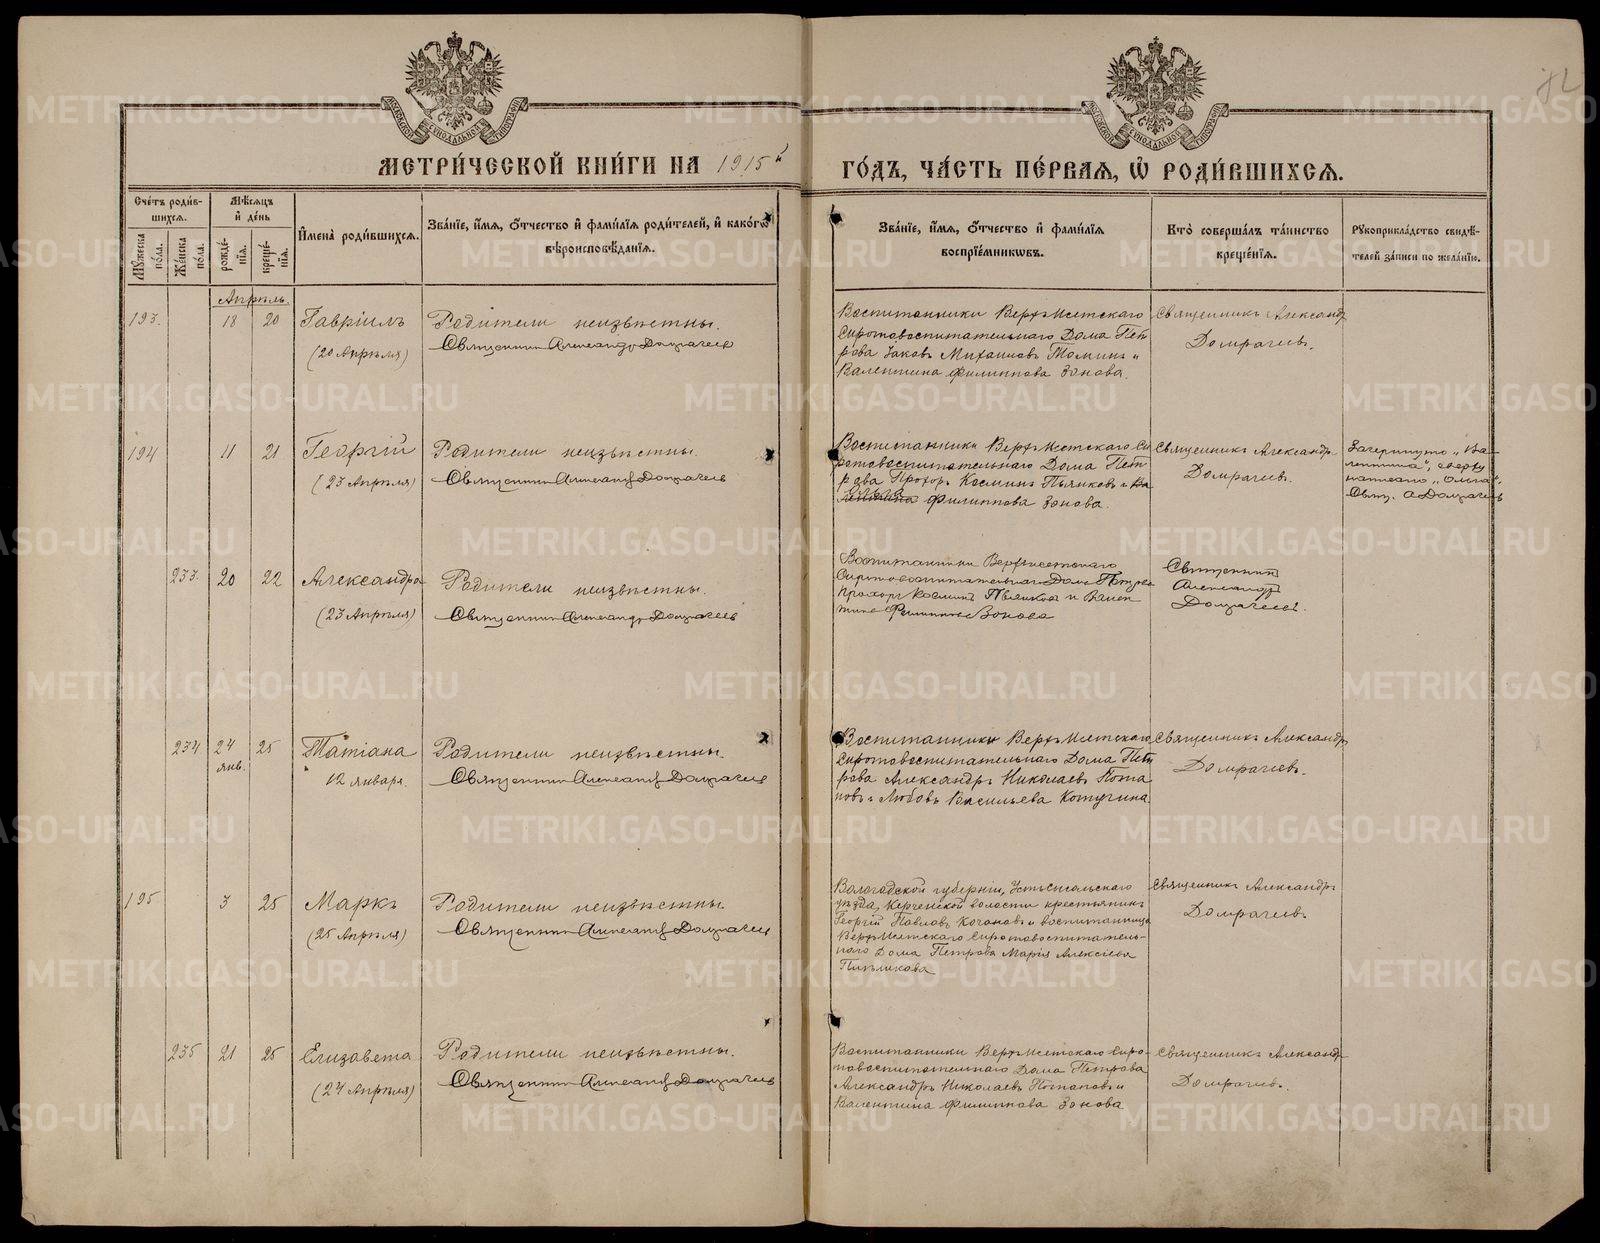 МЕТРИ́ЧЕСКОЙ КНИ́ГИ НА 1915й
ГО́ДЪ, ЧА́СТЬ ПЕ́РВАЯ, Ѡ҆ РОДИ́ВШИХСЯ.
Сче́тъ роди́в-
шихся.
Мѣ́сяцъ
и҆ де́нь
Му́жеска по́ла.
Же́нска по́ла.
рожде́-
нїя.
креще́-
нїя.
И҆мена̀ роди́вшихся.
Зва́нїе, и҆́мя, ѻ҆́тчество и҆ фами́лїя роди́телей, и҆ како́гѡ
вѣроисповѣ́данїя.
Зва́нїе, и҆́мя, ѻ҆́тчество и҆ фами́лїя
воспрїе́мникѡвъ.
Кто̀ соверша́лъ та́инство
креще́нїя.
Рꙋкоприкла́дство свидѣ́-
телей за́писи по жела́нїю.
Апрѣль.
193. 18 20 Гавріилъ
(20 Апрѣля)
Родители неизвѣстны.
Священникъ Александръ Домрачевъ
Воспитанники Верхъ-Исетскаго
Сиротовоспитательнаго Дома Пет
рова Іаковъ Михаиловъ Томинъ и
Валентина Филиппова Зонова.
Священникъ Александръ
Домрачевъ.
194 11 21 Георгій
(23 Апрѣля)
Родители неизвѣстны.
Священникъ Александръ Домрачевъ
Воспитанники Верхъ-Исетскаго Си
ротовоспитательнаго Дома Пет
рова Прохоръ Косминъ Пьянковъ и Ва
Ольга
лентина Филиппова Зонова.
Священникъ Александръ
Домрачевъ.
Зачеркнуто „Ва-
лентина“, сверху
написано „Ольга“.
Свящ. А Домрачевъ
233. 20 22 Александра
(23 Апрѣля)
Родители неизвѣстны.
Священникъ Александръ Домрачевъ
Воспитанники Верхъисетскаго
Сиротовоспитательнаго Дома Петрова
Прохоръ Косминъ Пьянковъ и Вален
тина Филиппова Зонова
Священникъ
Александръ
Домрачевъ.
234 24 25 Татіана
янв.
12 января.
Родители неизвѣстны.
Священникъ Александръ Домрачевъ
Воспитанники Верхъ-Исетскаго
Сиротовоспитательнаго Дома Пет
рова Александръ Николаевъ Пота
повъ и Любовь Васильева Котугина.
Священникъ Александръ
Домрачевъ.
195 3 25 Маркъ
(25 Апрѣля)
Родители неизвѣстны.
Священникъ Александръ Домрачевъ
Вологодской губерніи, Устьсысольскаго
уѣзда, Керчемской волости крестьянинъ
Георгій Павловъ Кочановъ и воспитанница
Верхъ-Исетскаго Сиротовоспитатель-
наго Дома Петрова Марія Алексіева
Священникъ Александръ
Домрачевъ.
235 21 25 Елизавета
(24 Апрѣля)
Родители неизвѣстны.
Священникъ Александръ Домрачевъ
Воспитанники Верхъ-Исетскаго Сиро-
товоспитательнаго Дома Петрова
Александръ Николаевъ Потаповъ и
Валентина Филиппова Зонова
Священникъ Александръ
Домрачевъ.
METRIKI.GASO-URAL.RU